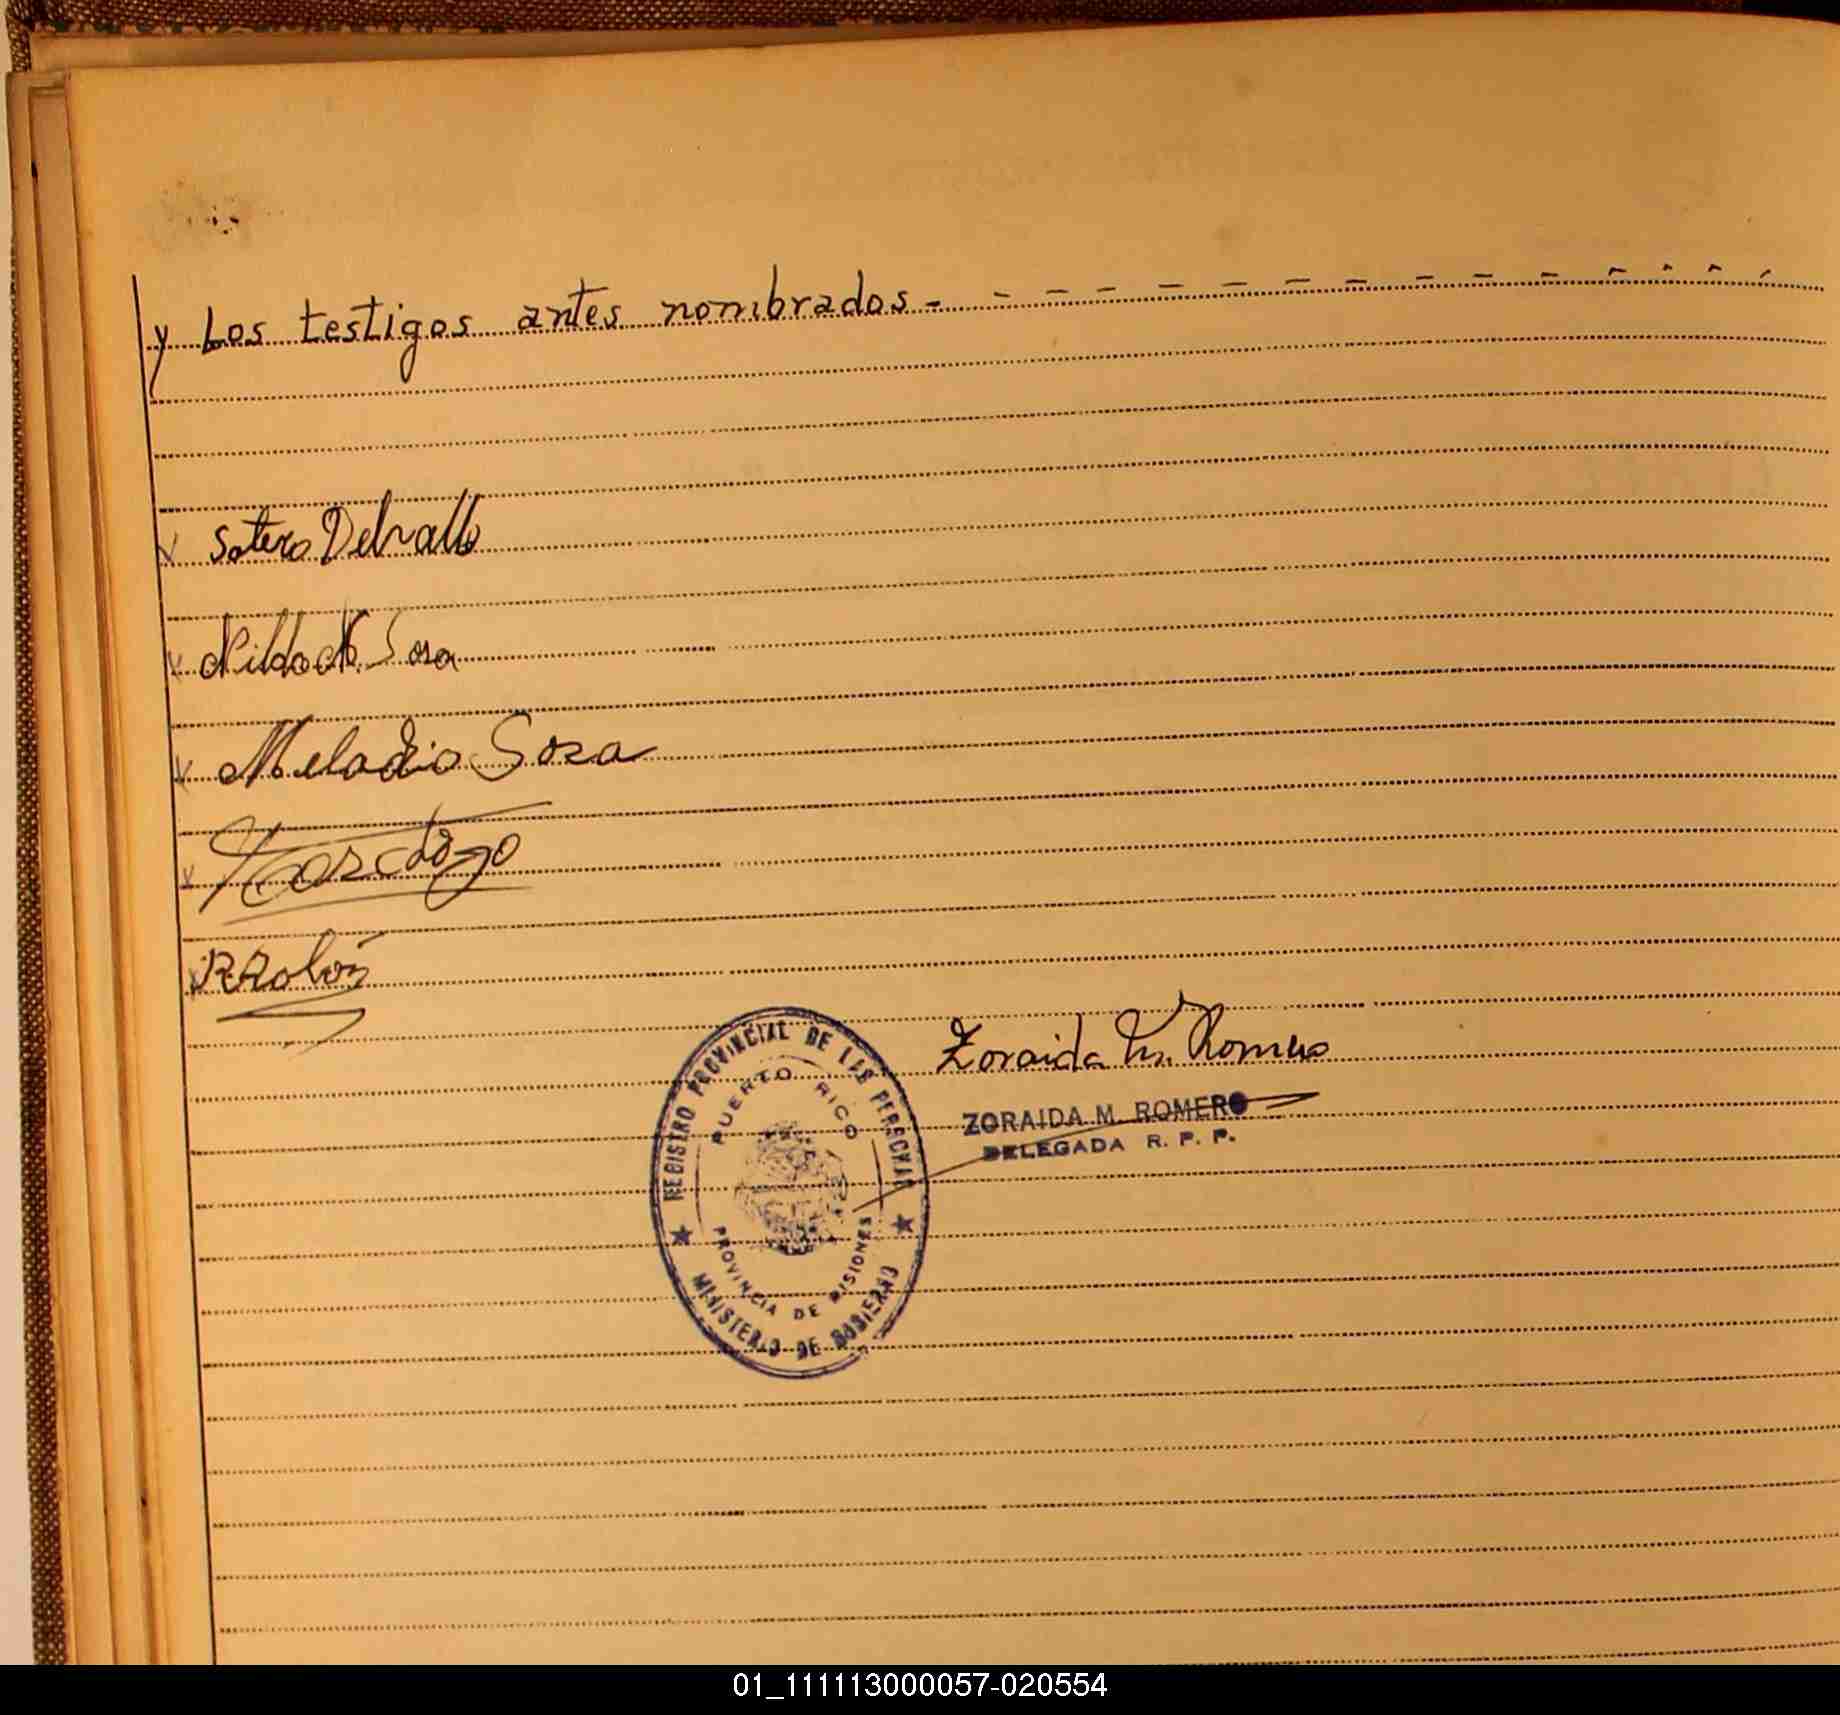 y Los testigos antes nombrados. - - - - - - - - - - - - - -
Sotero Delvalle
Nilda N. Sosa
Meladio Soza
RRolón
Zoraida M. Romero
ZORAIDA M. ROMERO
DELEGADA R. P. P.
REGISTRO PROVINCIAL DE LAS PERSONAS
PUERTO RICO
PROVINCIA DE MISIONES
MINISTERIO DE GOBIERNO
01_111113000057-020554